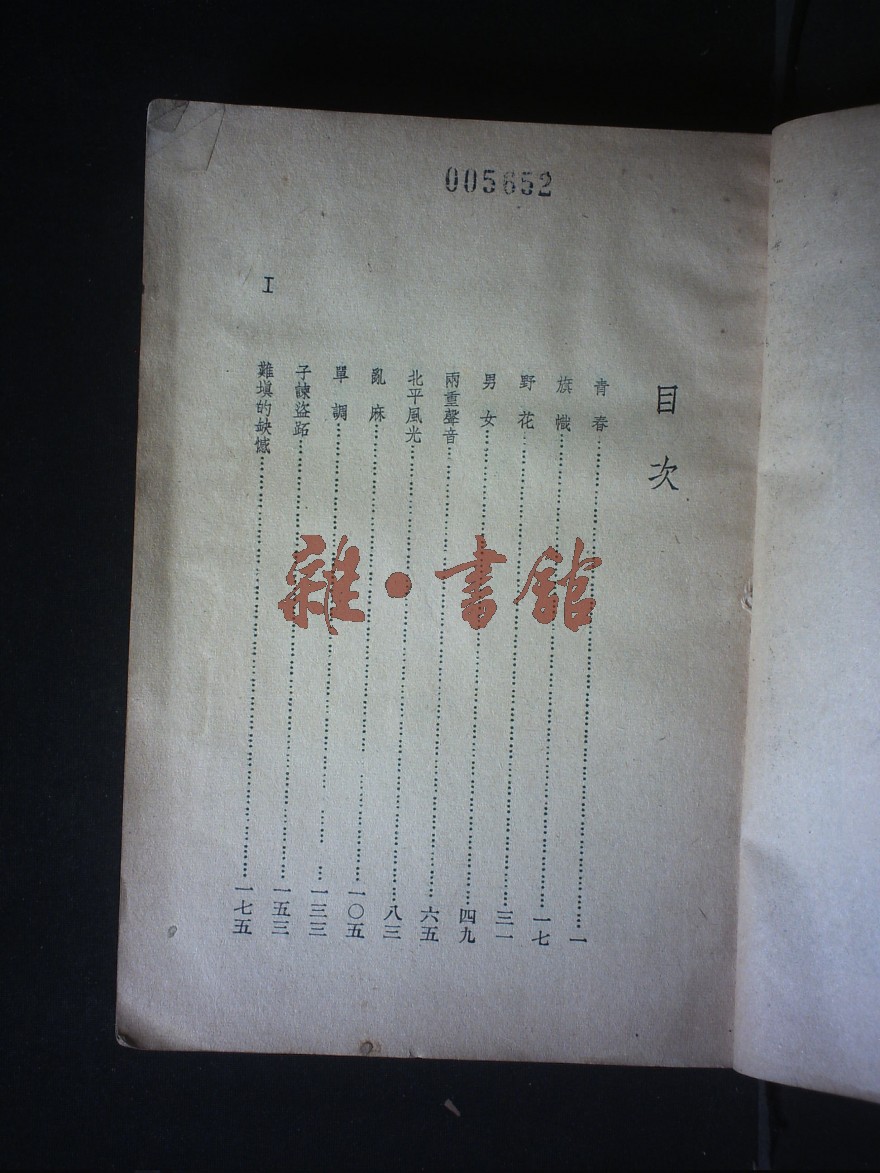 005652
目次
青春……一
旗幟……一七
野花……三一
男女……四九
兩重聲音……六五
北平風光……八三
亂麻……一〇五
單調……一三三
子諫盜跖……一五三
難塡的缺憾……一七五
I
雜·書館